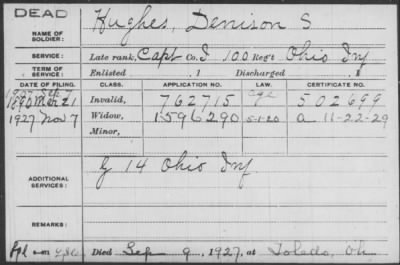 DEAD
NAME OF SOLDIER: Hughes, Denison S
SERVICE: Late rank, Capt Co. I, 100 Reg't Ohio Inf
TERM OF SERVICE: Enlisted , 1 Discharged , 1
DATE OF FILING. CLASS. APPLICATION NO. LAW. CERTIFICATE NO.
1890 21 Invalid, 762715 Age 502699
1927 Nov 7 Widow, 1596290 5-1-20 a 11-22-29
Minor,
ADDITIONAL SERVICES: G 14 Ohio Inf
REMARKS:
Died Sep 9, 1927, at Toledo, Oh